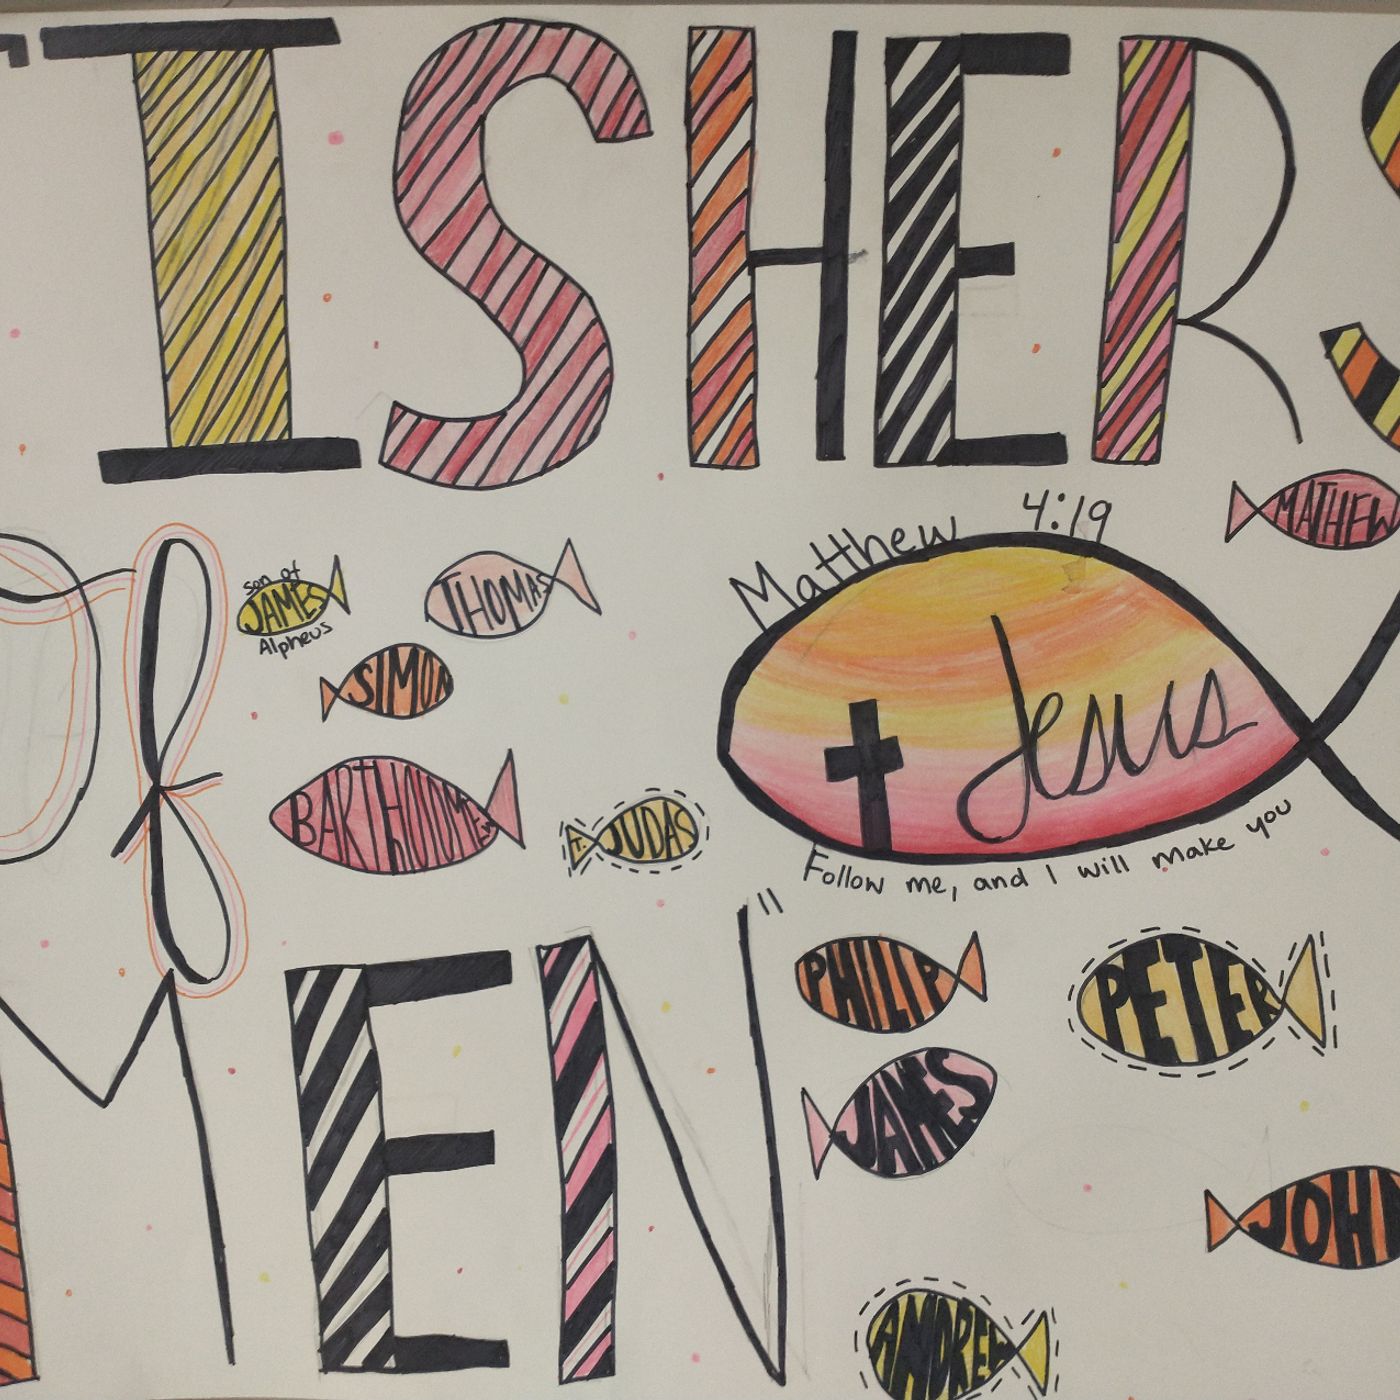 "FISHERS
of
MEN"
Matthew 4:19
Jesus
Follow me, and I will make you
MATHEW
son of
JAMES
Alpheus
THOMAS
SIMON
BARTHOLOMEW
T. JUDAS
PHILIP
PETER
JAMES
JOHN
ANDREW